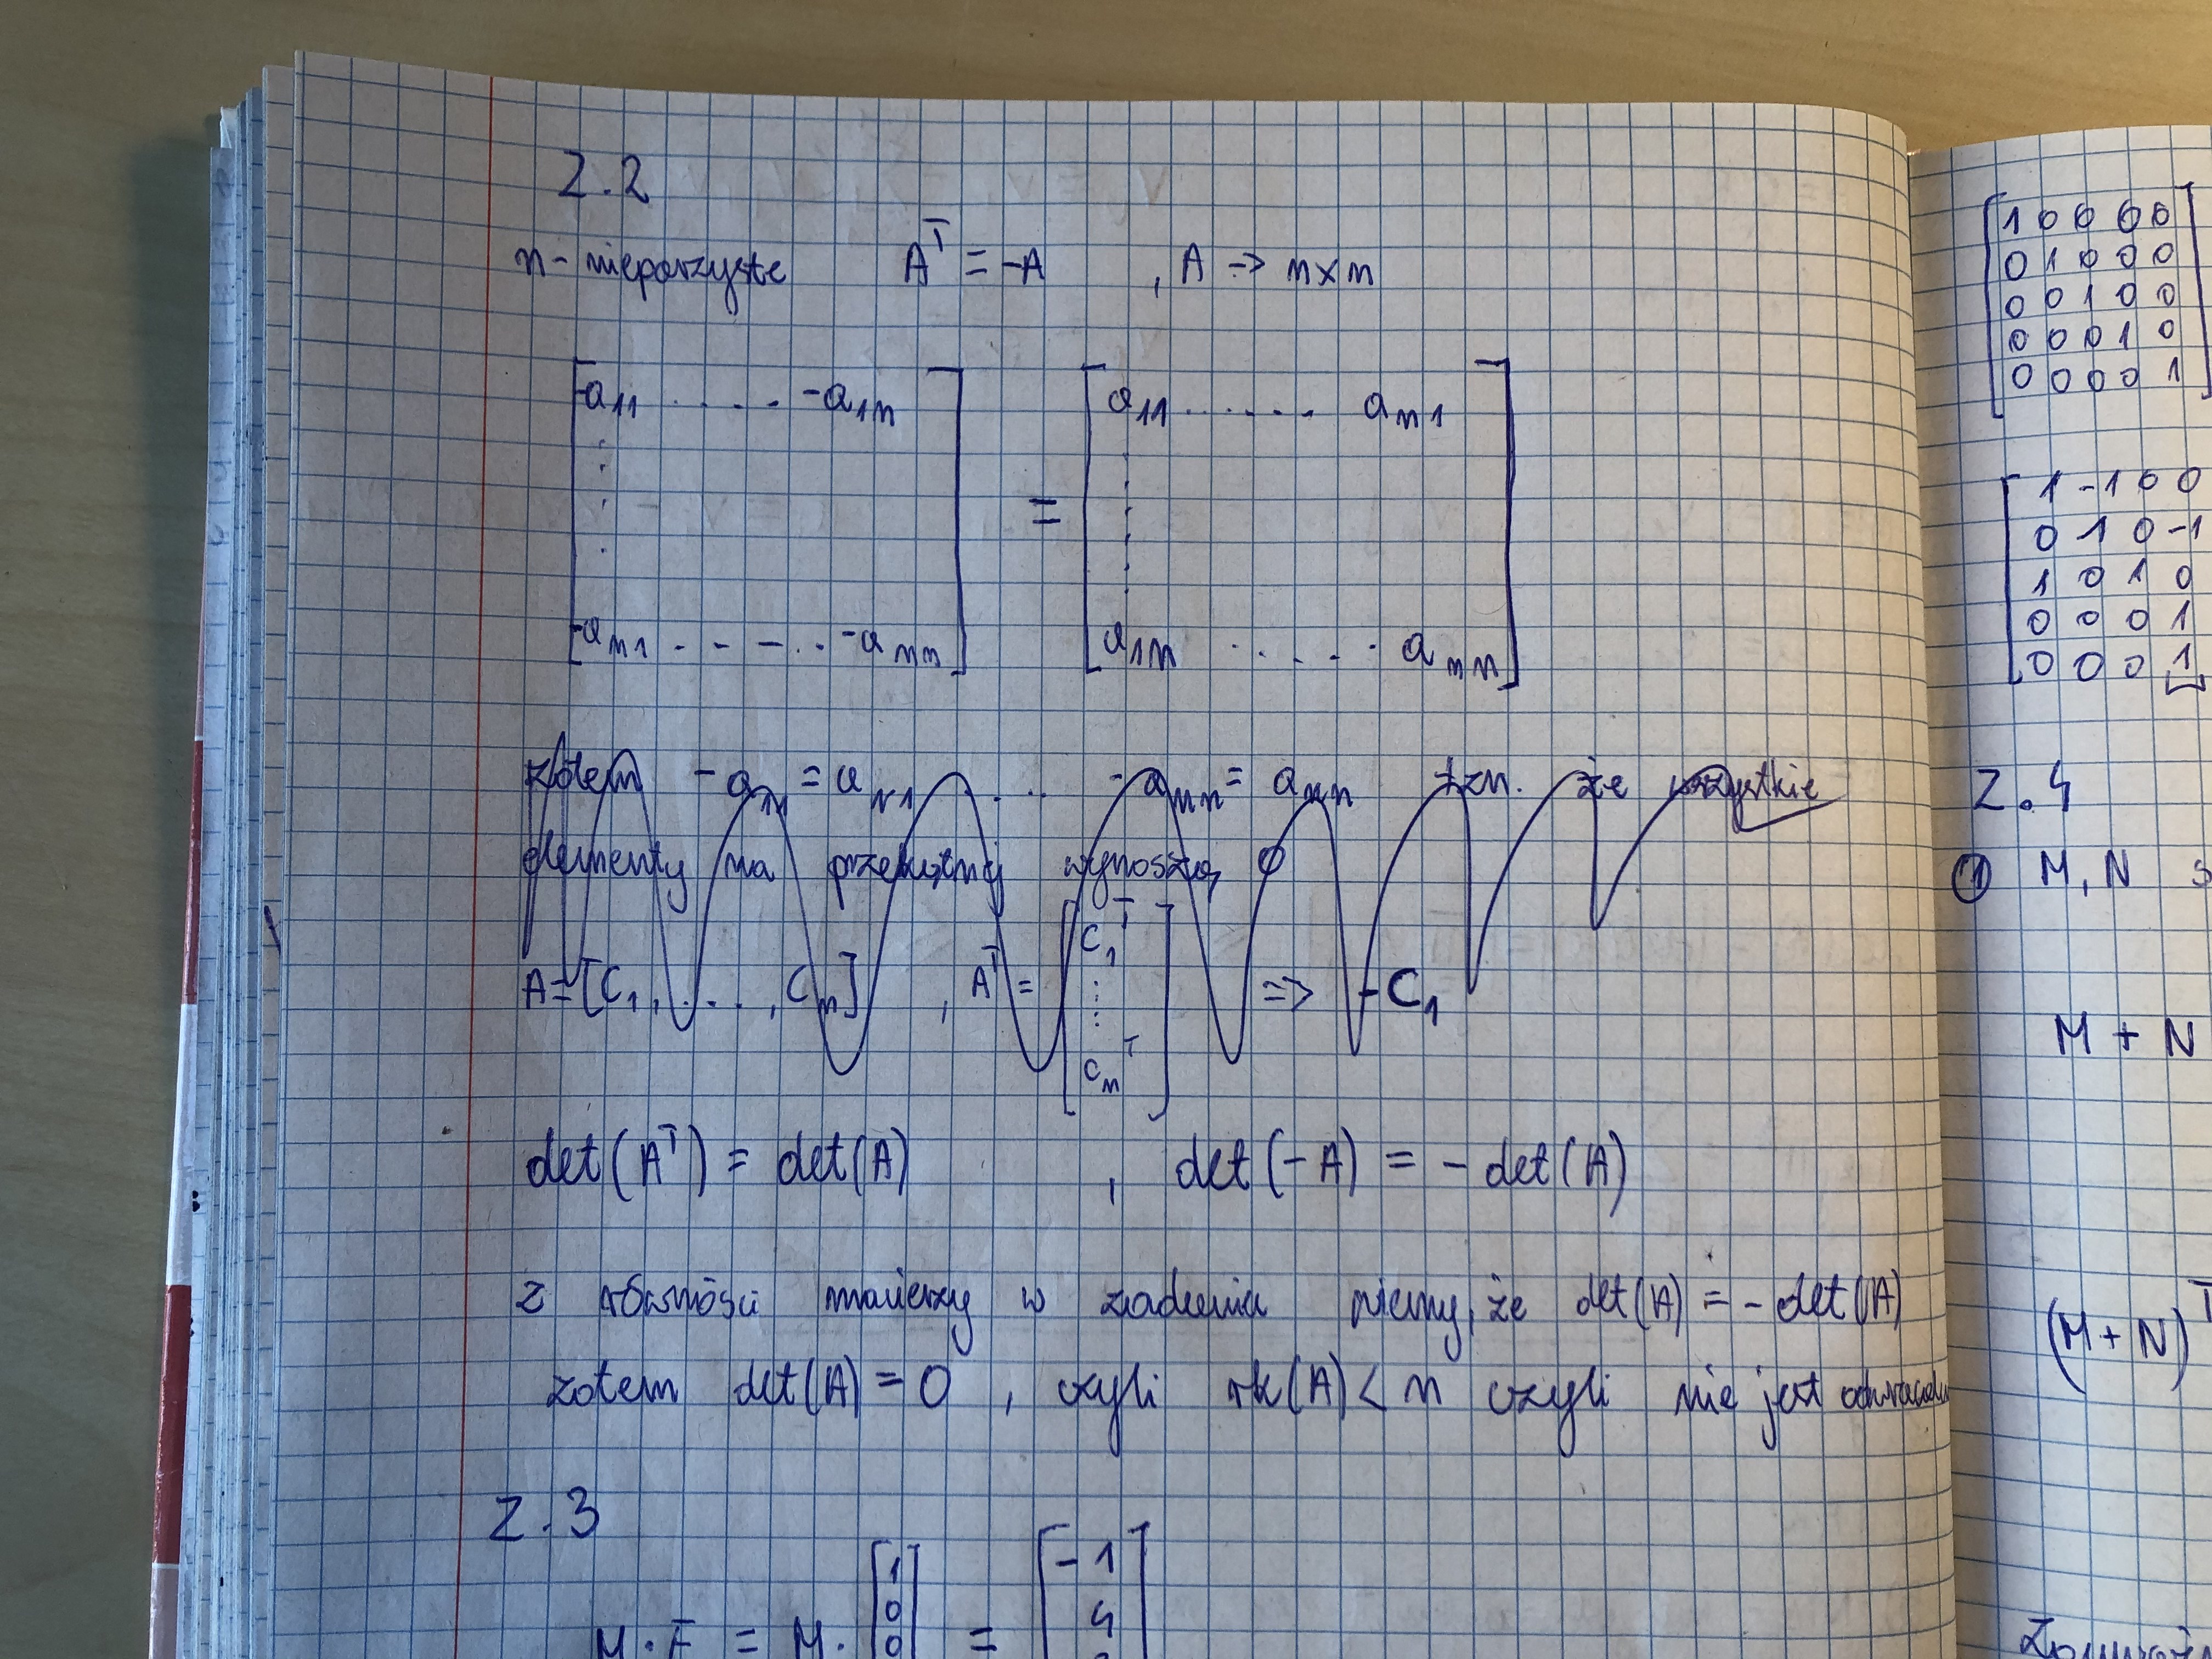 Z.2
n - nieparzyste A^T = -A , A => n×n
[-a_11 ..... -a_1n
⋮
-a_n1 ...... -a_nn] = [a_11 ...... a_n1
⋮
a_1n ..... a_nn]
zatem -a_11 = a_11 .... -a_nn = a_nn tzn. że wszystkie
elementy na przekątnej wynoszą 0
A = [C_1, ..., C_n] , A^T = [C_1^T
⋮
C_n^T] => -C_1
det(A^T) = det(A) , det(-A) = -det(A)
z równości macierzy w zadaniu wiemy, że det(A) = -det(A)
zatem det(A) = 0 , czyli rk(A) < n czyli nie jest
Z.3
M · F = M · [1
0
0 = [-1
4
[1 0 0 0 0
0 1 0 0 0
0 0 1 0 0
0 0 0 1 0
0 0 0 0 1]
[1 -1 0 0
0 1 0 -1
1 0 1 0
0 0 0 1
0 0 0 1]
Z.4
① M, N
M + N
(M + N)^T